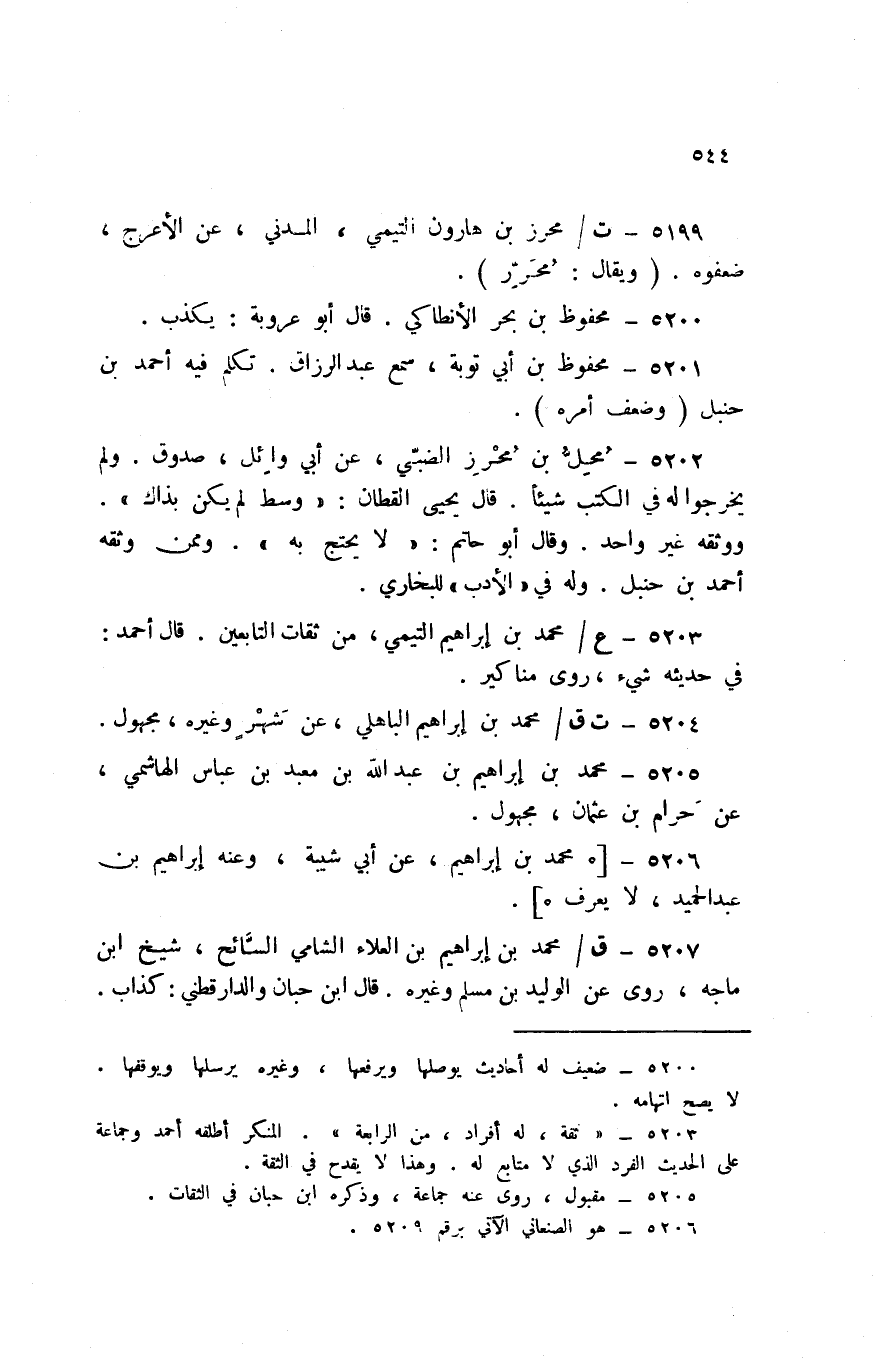 ٥٤٤
٥١٩٩ – ت / محرز بن هارون التيمي ، المدني ، عن الأعرج ،
ضعفوه . ( ويقال : مُحَرِّر ) .
٥٢٠٠ – محفوظ بن بحر الأنطاكي . قال أبو عروبة : يكذب .
٥٢٠١ – محفوظ بن أبي توبة ، سمع عبدالرزاق . تكلم فيه أحمد بن
حنبل ( وضعف أمره ) .
٥٢٠٢ – مُحِلّ بن مُحْرِز الضبّي ، عن أبي وائل ، صدوق . ولم
يخرجوا له في الكتب شيئاً . قال يحيى القطان : « وسط لم يكن بذاك » .
ووثقه غير واحد . وقال أبو حاتم : « لا يحتج به » . وممن وثقه
أحمد بن حنبل . وله في « الأدب » للبخاري .
٥٢٠٣ – ع / محمد بن إبراهيم التيمي ، من ثقات التابعين . قال أحمد :
في حديثه شيء ، روى مناكير .
٥٢٠٤ – ت ق / محمد بن إبراهيم الباهلي ، عن شَهْرٍ وغيره ، مجهول .
٥٢٠٥ – محمد بن إبراهيم بن عبد الله بن معبد بن عباس الهاشمي ،
عن حَرام بن عثمان ، مجهول .
٥٢٠٦ – [٥ محمد بن إبراهيم ، عن أبي شيبة ، وعنه إبراهيم بن
عبدالحميد ، لا يعرف ٥] .
٥٢٠٧ – ق / محمد بن إبراهيم بن العلاء الشامي السَّائح ، شيخ ابن
ماجه ، روى عن الوليد بن مسلم وغيره . قال ابن حبان والدارقطني : كذاب .
٥٢٠٠ – ضعيف له أحاديث يوصلها ويرفعها ، وغيره يرسلها ويوقفها .
لا يصح اتهامه .
٥٢٠٣ – « ثقة ، له أفراد ، من الرابعة » . المنكر أطلقه أحمد وجماعة
على الحديث الفرد الذي لا متابع له . وهذا لا يقدح في الثقة .
٥٢٠٥ – مقبول ، روى عنه جماعة ، وذكره ابن حبان في الثقات .
٥٢٠٦ – هو الصنعاني الآتي برقم ٥٢٠٩ .